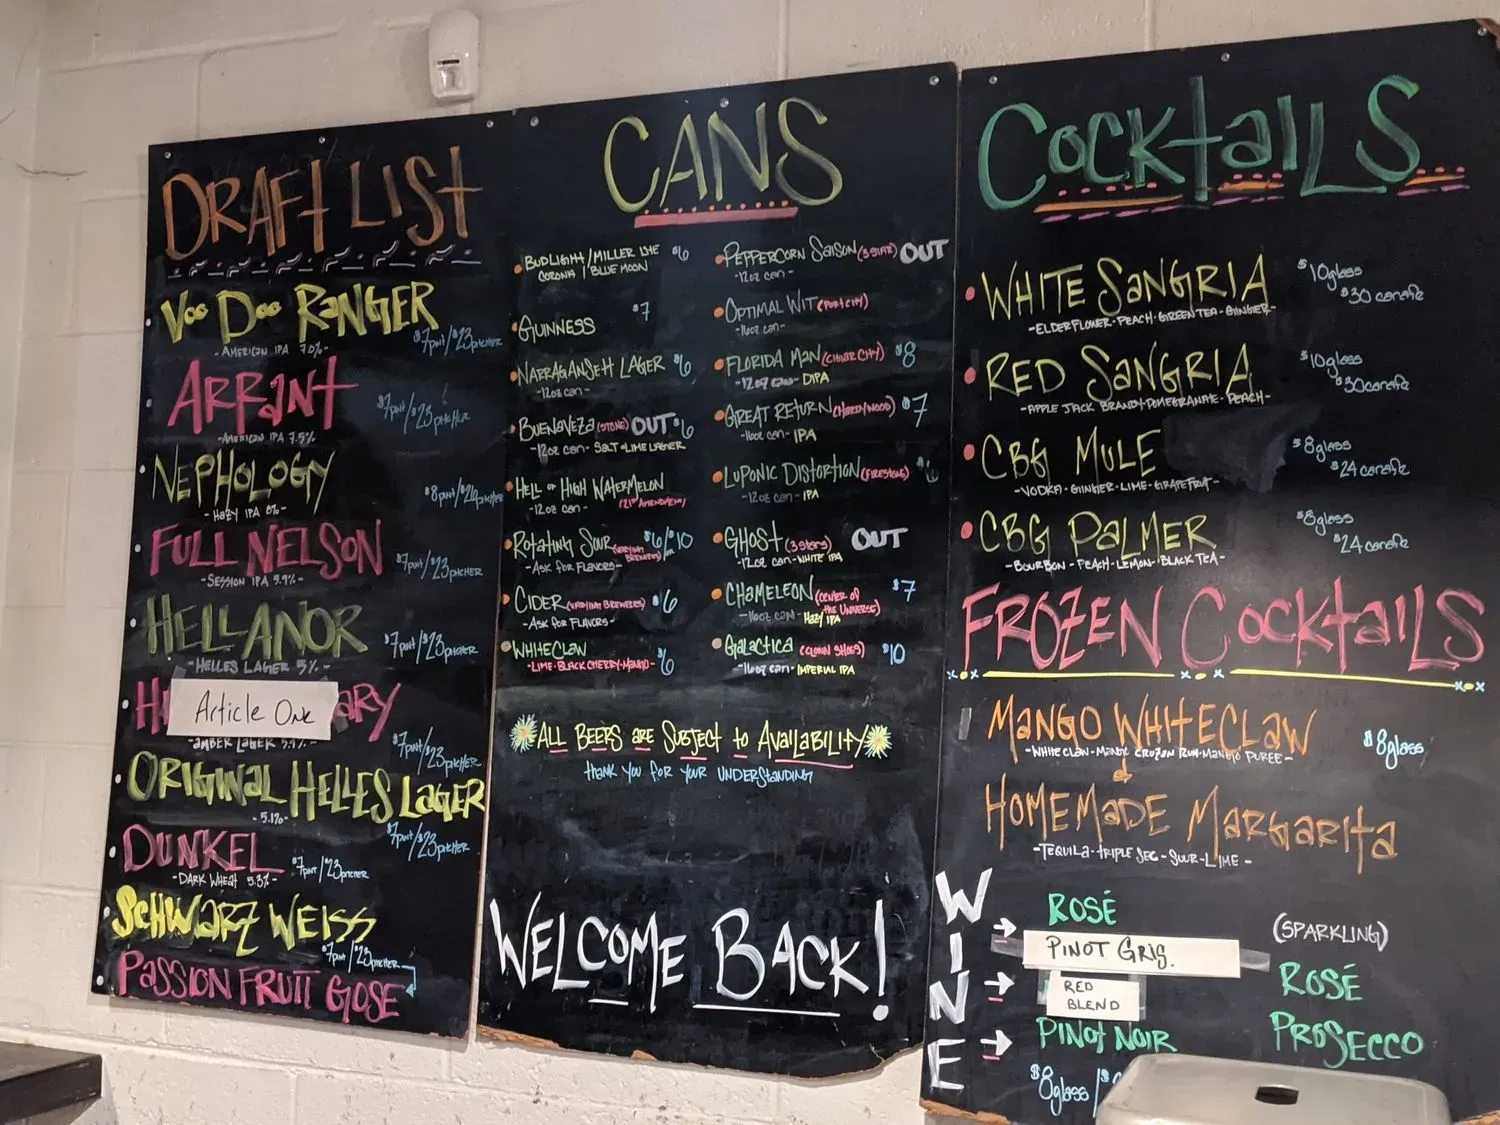 DRAFT LIST
VOO DOO RANGER
$7pint/$23pitcher
- AMERICAN IPA 7.0% -
ARRANT
$7pint/$23pitcher
-AMERICAN IPA 7.5%-
NEPHOLOGY
$8pint/$26pitcher
- HAZY IPA 8% -
FULL NELSON
$7pint/$23pitcher
-SESSION IPA 5.9%-
HELLANOR
$7pint/$23pitcher
-HELLES LAGER 5%-
Article One
ARY
-AMBER LAGER
$7pint/$23pitcher
ORIGINAL HELLES LAGER
- 5.1% -
$7pint/$23pitcher
DUNKEL
$7pint/$23pitcher
-DARK WHEAT 5.3%-
SCHWARZ WEISS
$7pint/$23pitcher
PASSION FRUIT GOSE
CANS
BUDLIGHT/MILLER LITE $6
CORONA/BLUE MOON
GUINNESS $7
NARRAGANSETT LAGER $6
-12oz can-
BUENAVEZA (STONE) OUT $6
-12oz can- SALT & LIME LAGER
HELL OR HIGH WATERMELON
-12oz can- (21st AMENDMENT)
ROTATING SOUR (VARYING BREWERIES) $6/$10
-ASK FOR FLAVORS-
CIDER (VARYING BREWERIES) $6
-ASK FOR FLAVORS-
WHITECLAW $6
-LIME-BLACK CHERRY-MANGO-
PEPPERCORN SAISON (3 STAR) OUT
-12oz can-
OPTIMAL WIT (PORT CITY)
-16oz can-
FLORIDA MAN (CIGAR CITY) $8
-12oz can- DIPA
GREAT RETURN (HARDYWOOD) $7
-16oz can- IPA
LUPONIC DISTORTION (FIRESTONE)
-12oz can- IPA
GHOST (3 STARS) OUT
-12oz can-WHITE IPA
CHAMELEON (CENTER OF THE UNIVERSE) $7
-16oz can- HAZY IPA
GALACTICA (CLOWN SHOES) $10
-16oz can- IMPERIAL IPA
ALL BEERS ARE SUBJECT to AVAILABILITY
THANK YOU FOR YOUR UNDERSTANDING
WELCOME BACK!
COCKTAILS
WHITE SANGRIA $10glass
$30 carafe
-ELDERFLOWER-PEACH-GREEN TEA-GINGER-
RED SANGRIA $10glass
$30carafe
-APPLE JACK BRANDY-POMEGRANATE-PEACH-
CBG MULE $8glass
$24 carafe
-VODKA-GINGER-LIME-GRAPEFRUIT-
CBG PALMER $8glass
$24 carafe
-BOURBON-PEACH-LEMON-BLACK TEA-
FROZEN COCKTAILS
MANGO WHITECLAW $8glass
-WHITE CLAW-MANGO CRUZAN RUM-MANGO PUREE-
HOMEMADE MARGARITA
-TEQUILA-TRIPLE SEC-SOUR-LIME-
WINE
ROSÉ
PINOT GRIG.
RED
BLEND
PINOT NOIR
$8glass/$
(SPARKLING)
ROSÉ
PROSECCO